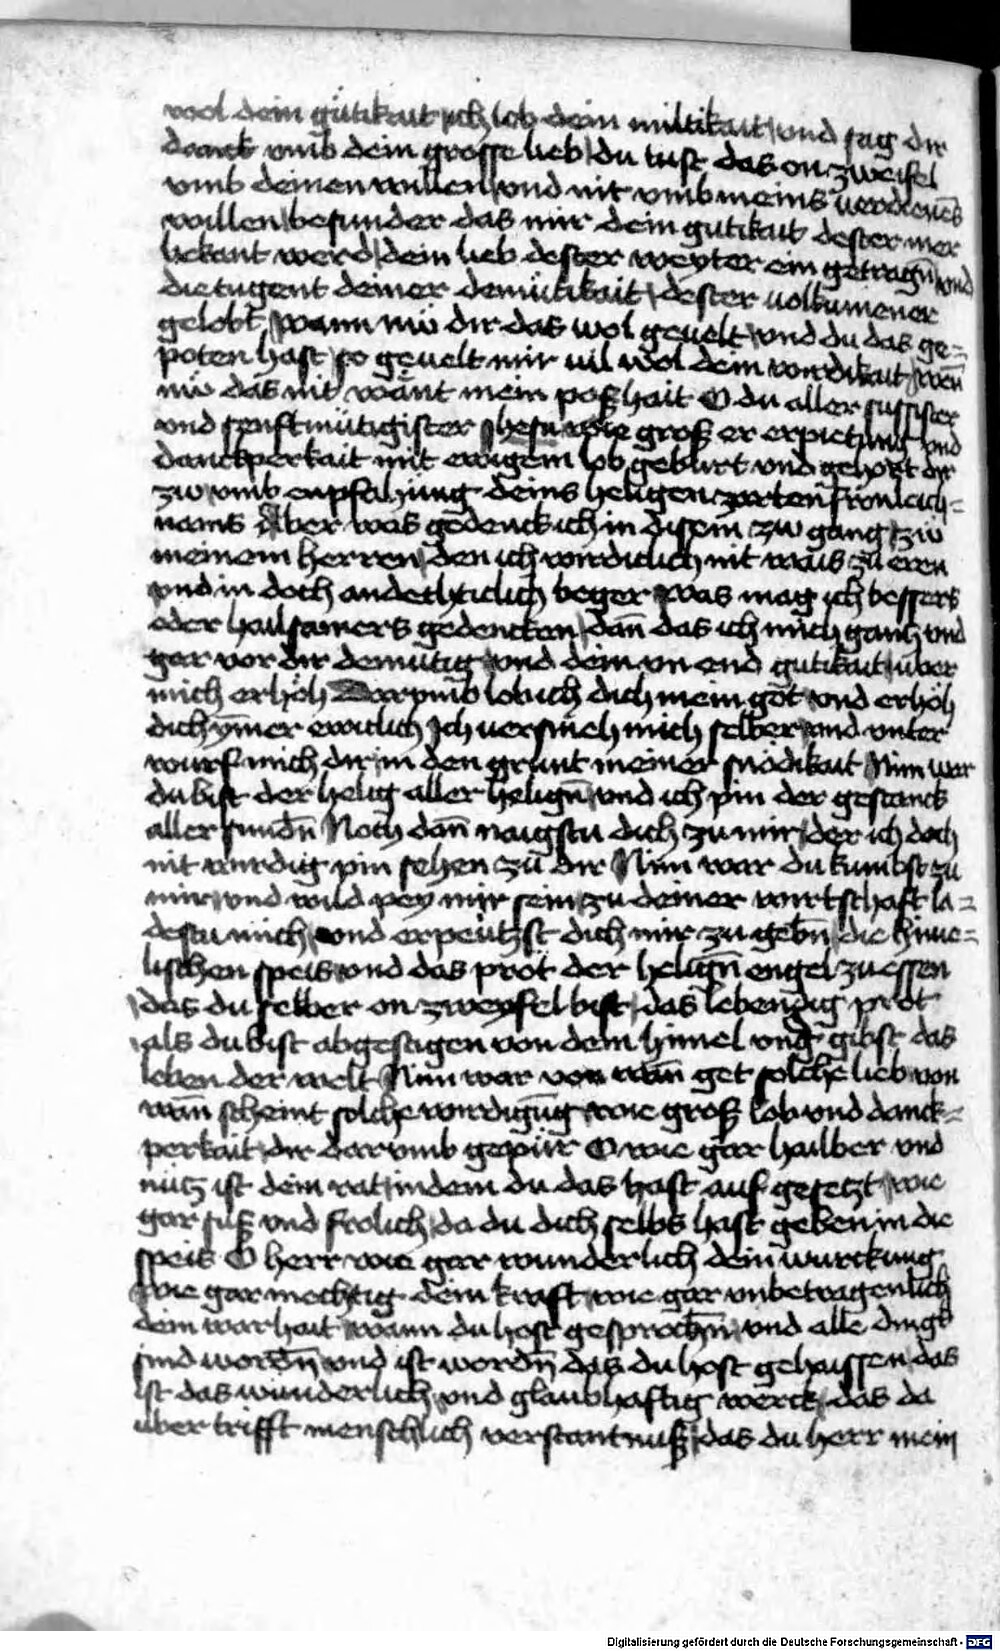 wol dein gütikait ich lob dein miltikait vnd sag dir
danck vmb dein grosse lieb du tust das on zweifel
vmb deinen willen vnd nit vmb meins verdienes
willen besunder das mir dein gutikait dester mer
bekant werd dein lieb dester weyter ein getragn̄ vnd
die tugent deiner demütikait dester volkumener
gelobt wann nw dir das wol geuelt vnd du das ge=
poten hast so geuelt mir vil wol dein wirdikait wen̄
nw das nit want mein poßhait O du aller sussister
vnd senftmütigister Jhesu wie groß er erpietung vnd
danckperkait mit ewigem lob geburt vnd gehört dir
zw vmb enpfahung deins heligen zarten fronleich=
nams Aber was gedenck ich in disem zw gang zw
meinem herren den ich wirdiclich nit wais zu eren
vnd in doch andechticlich beger was mag ich bessers
oder hailsamers gedencken dan̄ das ich mich gantz vnd
gar vor dir demütig vnd dein vn end gutikait über
mich erhöh Darvmb lob ich dich mein got vnd erhöh
dich ym̄er ewiclich Ich versmeh mich selber vnd vnter
wurf mich dir in den grunt meiner snödikait Nim war
du bist der helig aller helign̄ vnd ich pin der gestanck
aller sundn̄ Noch dan̄ naigstu dich zu mir der ich doch
nit wirdig pin sehen zu dir Nim war du kumbst zu
mir vnd wild pey mir sein zu deiner wirtschaft la=
destu mich vnd erpeützst dich mir zu gebn̄ die hime=
lischen speis vnd das prot der helign̄ engel zu essen
das du selber on zweyfel bist das lebendig prot
als du bist abgestigen von dem himel vnd gibst das
leben der welt Nim war von wan̄ get solche lieb von
wan̄ scheint solche wirdigūg wie groß lob vnd danck=
perkait dir darvmb gepürt O wie gar hailber vnd
nütz ist dein rat in dem du das hast auf gesetzt wie
gar süß vnd frolich da du dich selbs hast geben in die
speis O herr wie gar wunderlich dein wurckung
wie gar mechtig dein kraft wie gar vnbetragenlich
dein warhait wann du host gesprochn̄ vnd alle dingk
sind wordn̄ vnd ist wordn̄ das du host gehaissen das
ist das wunderlich vnd glaubhaftig werck das da
über trifft menschlich verstantnuß das du herr mein
Digitalisierung gefördert durch die Deutsche Forschungsgemeinschaft - DFG